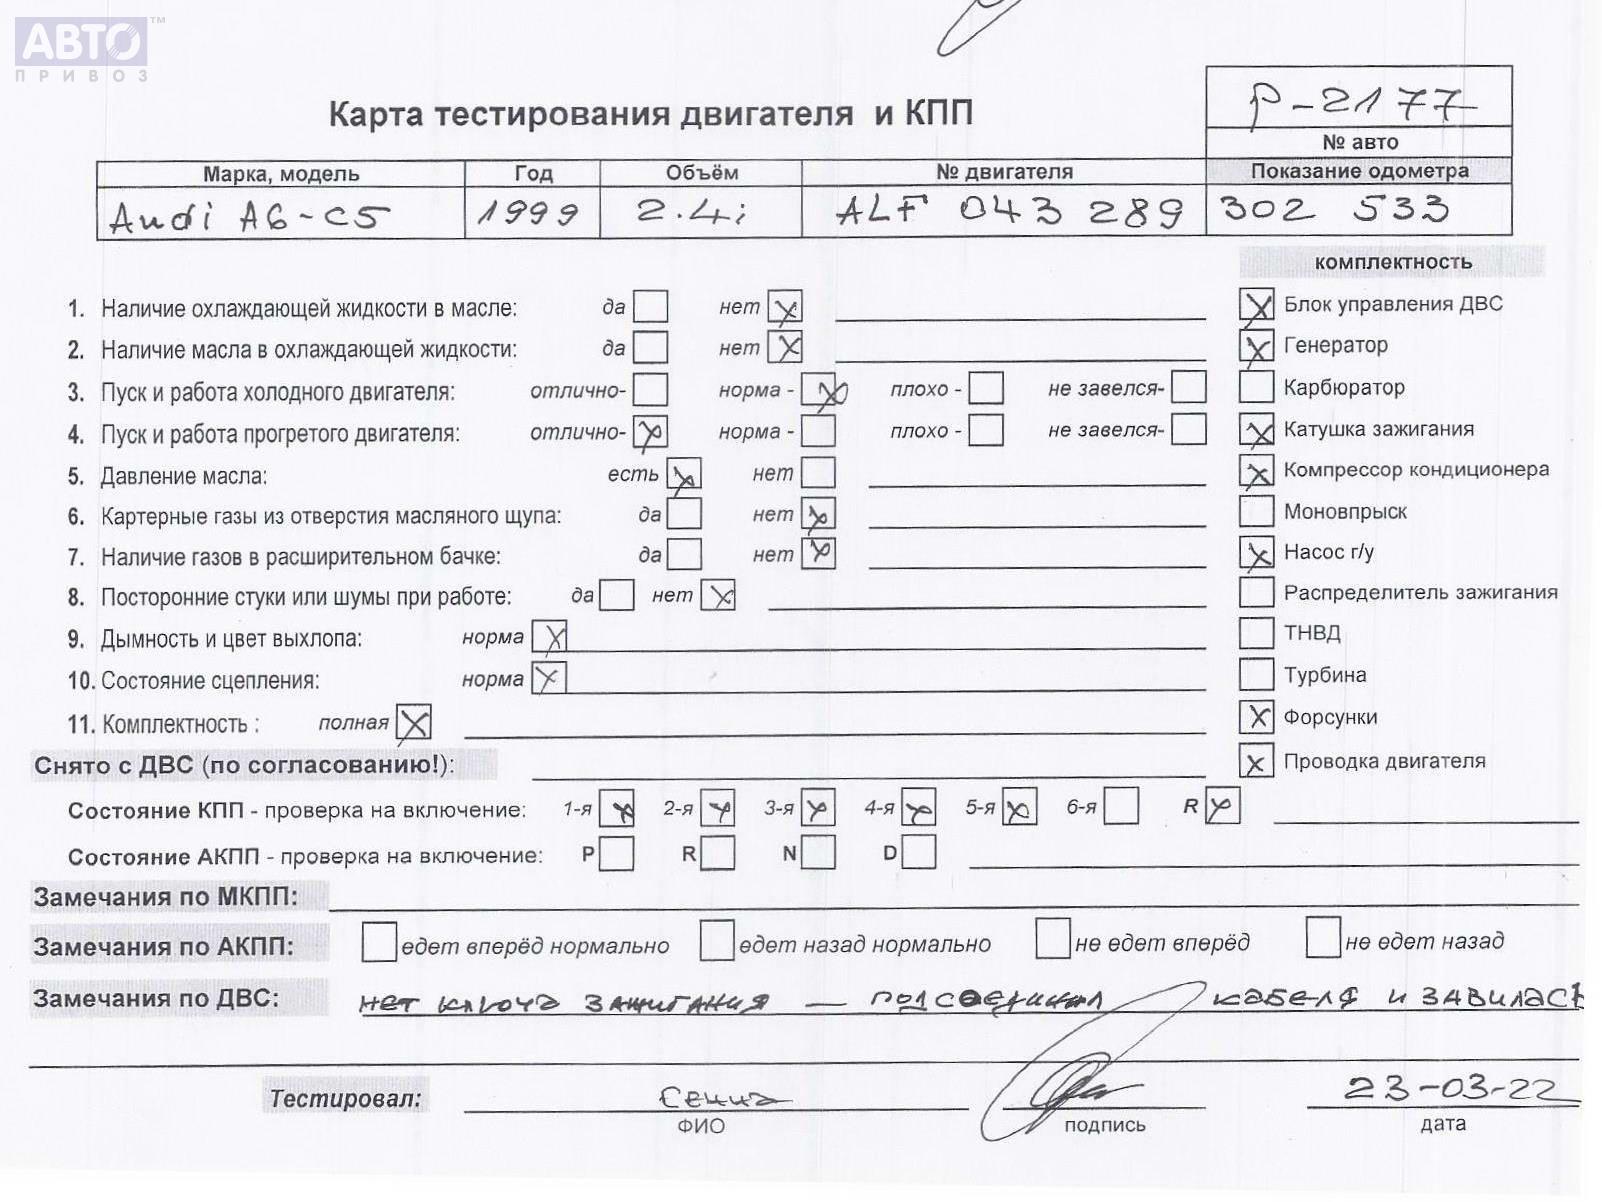 АВТО™
ПРИВОЗ
Р-2177
Карта тестирования двигателя и КПП
№ авто
Марка, модель Год Объём № двигателя Показание одометра
Audi A6-C5 1999 2.4i ALF 043 289 302 533
комплектность
1. Наличие охлаждающей жидкости в масле: да нет X
X Блок управления ДВС
2. Наличие масла в охлаждающей жидкости: да нет X
X Генератор
3. Пуск и работа холодного двигателя: отлично- норма - X плохо - не завелся-
Карбюратор
4. Пуск и работа прогретого двигателя: отлично- X норма - плохо - не завелся-
X Катушка зажигания
5. Давление масла: есть X нет
X Компрессор кондиционера
6. Картерные газы из отверстия масляного щупа: да нет X
Моновпрыск
7. Наличие газов в расширительном бачке: да нет X
X Насос г/у
8. Посторонние стуки или шумы при работе: да нет X
Распределитель зажигания
9. Дымность и цвет выхлопа: норма X
ТНВД
10. Состояние сцепления: норма X
Турбина
11. Комплектность : полная X
X Форсунки
Снято с ДВС (по согласованию!):
X Проводка двигателя
Состояние КПП - проверка на включение: 1-я X 2-я X 3-я X 4-я X 5-я X 6-я R X
Состояние АКПП - проверка на включение: P R N D
Замечания по МКПП:
Замечания по АКПП: едет вперёд нормально едет назад нормально не едет вперёд не едет назад
Замечания по ДВС: нет ключа зажигания — подсоединил кабеля и завилась
Тестировал: Сенна 23-03-22
ФИО подпись дата